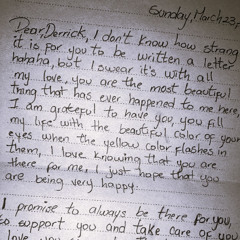 Sunday, March 23,
Dear, Derrick, I don't know how strang
it is for you to be written a letter
hahaha, but I swear it's with all
my love, you are the most beautiful
thing that has ever happened to me here,
I am grateful to have you, you fill
my life with the beautiful color of your
eyes when the yellow color flashes in
them, I love knowing that you are
there for me, I just hope that you
are being very happy.
I promise to always be there for you,
to support you and take care of you
love you